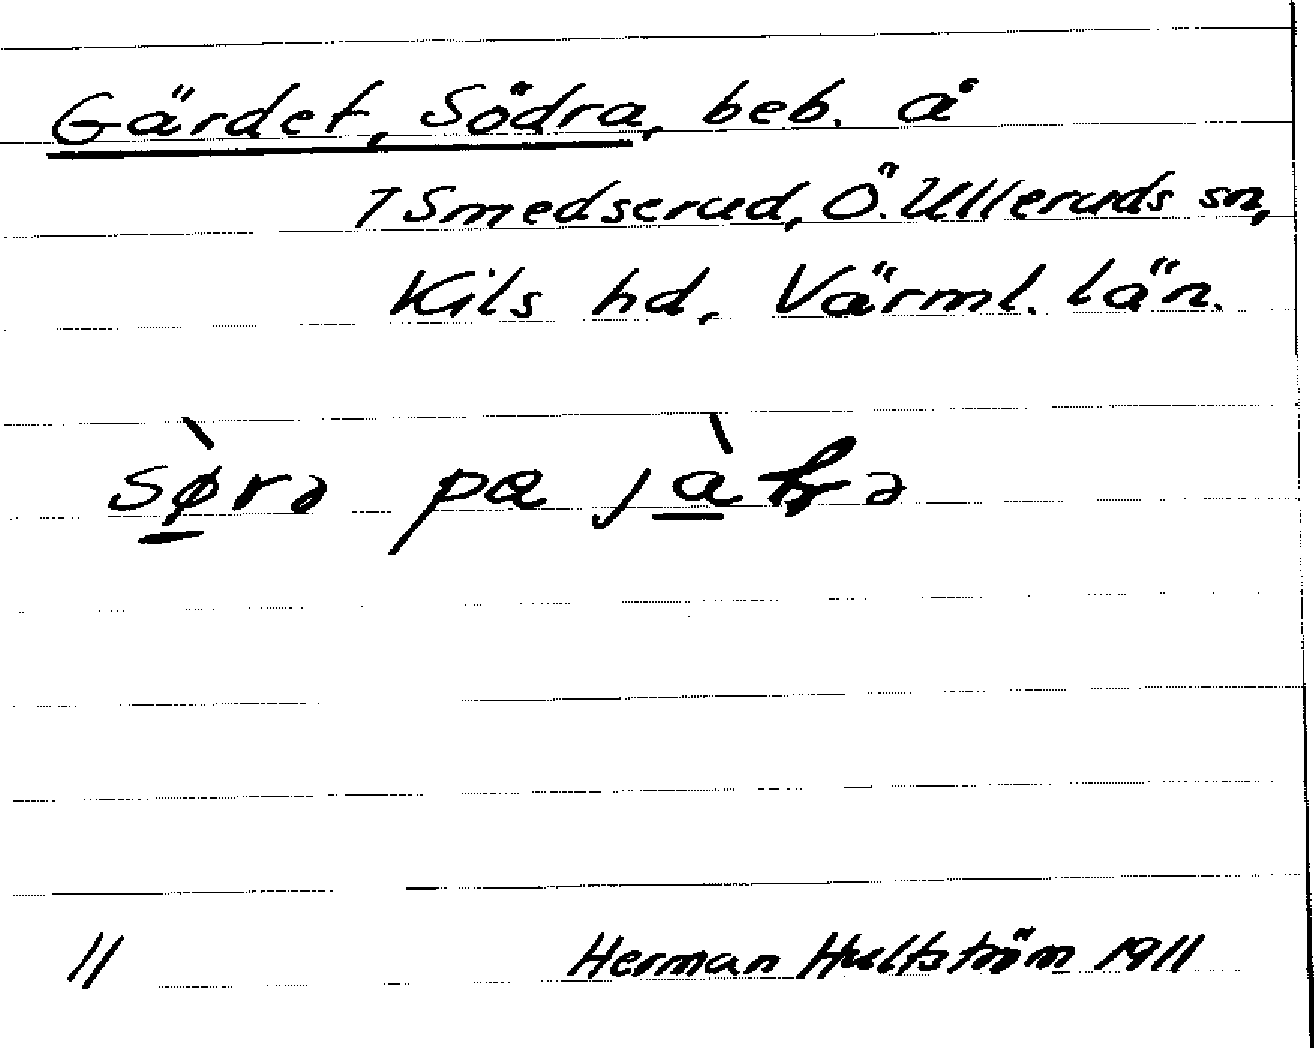 Gärdet, Södra, beb. å
7 Smedserud, Ö. Ulleruds sn,
Kils hd, Värml. län.
sø̀rə pa
11 Herman Hultström 1911